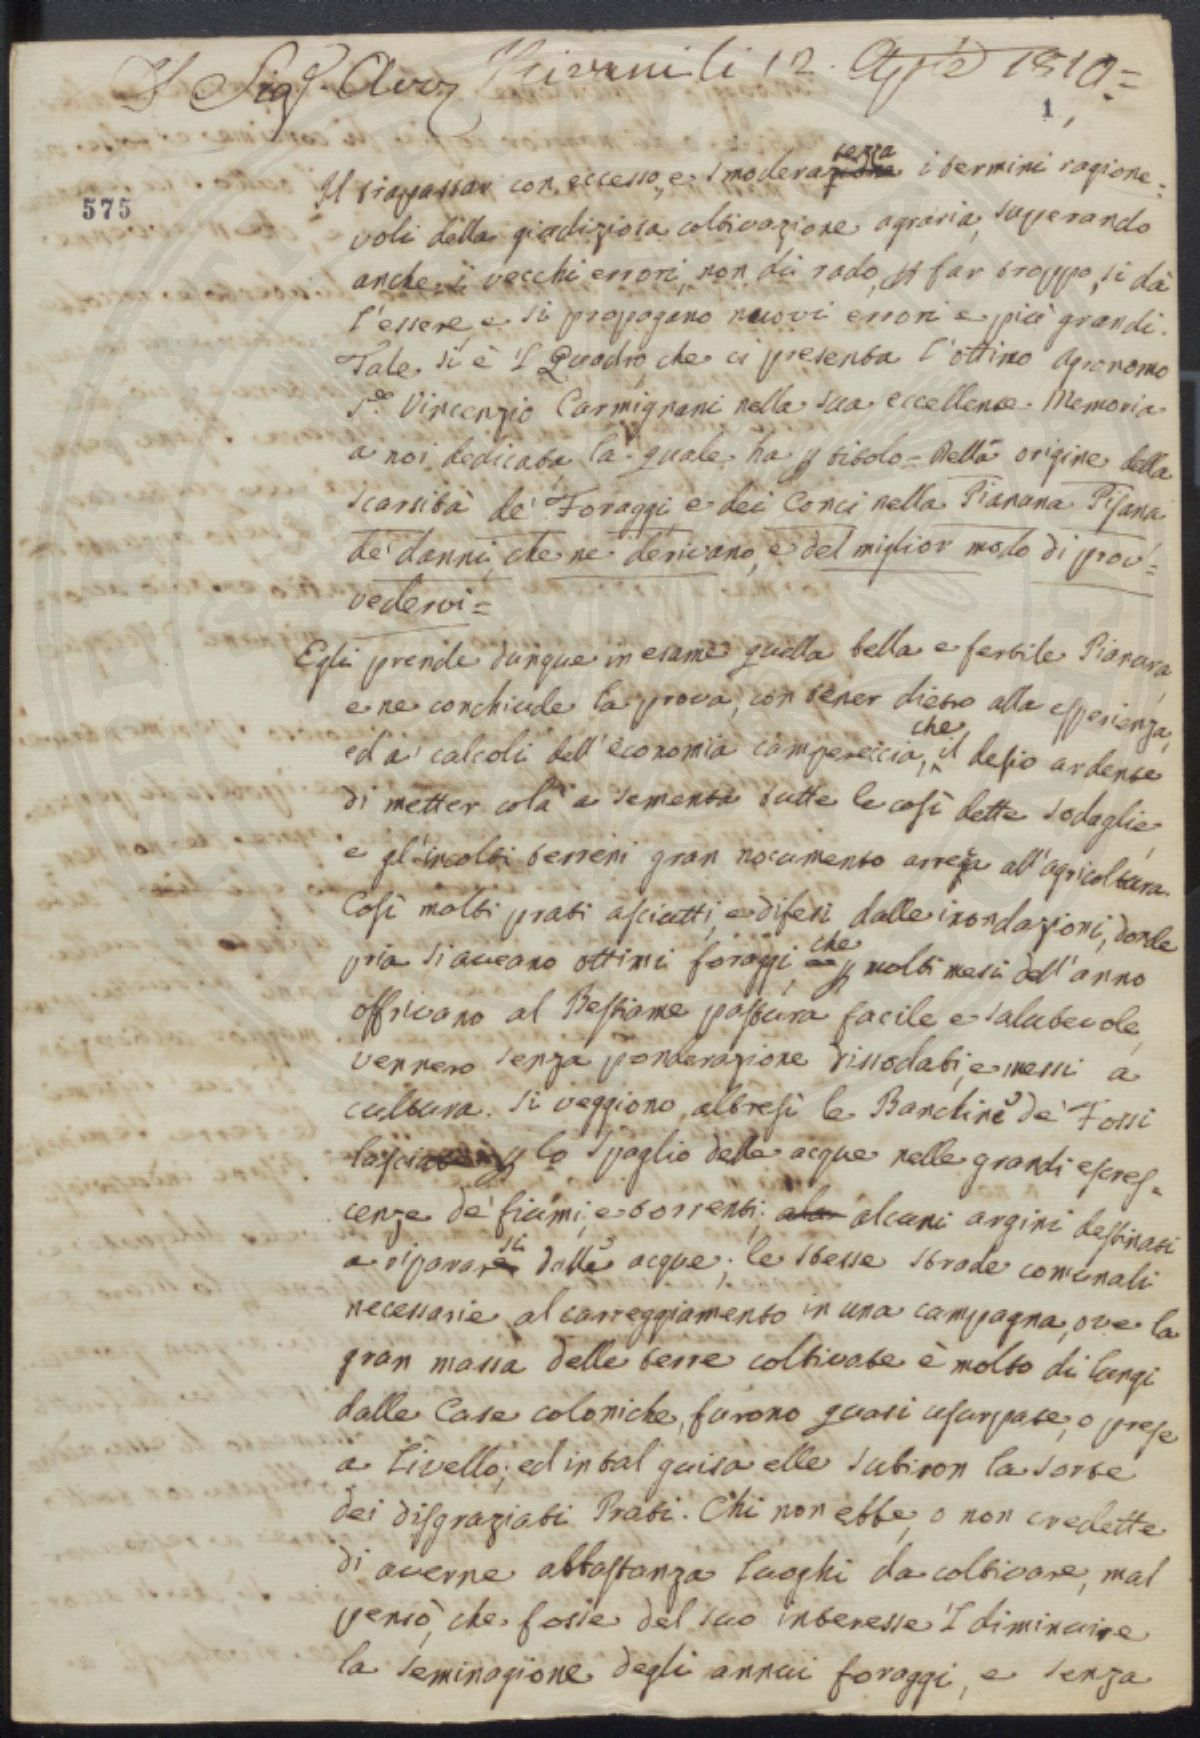 Il Sig.r Avv. li 12. Aprile 1810=
1
575
Il trapassar con eccesso, e smoderatezza i termini ragione=
voli della giudiziosa coltivazione agraria, superando
anche i vecchi errori, non di rado, p far troppo, si dà
l'essere, e si propagano nuovi errori e più grandi.
Tale si è 'l Quadro, che ci presenta l'ottimo Agronomo
S.r Vincenzio Carmignani nella sua eccellente Memoria
a noi dedicata, la quale ha p titolo = Della origine della
scarsità de' Foraggi, e dei Conci nella Pianura Pisana
de' danni, che ne derivano, e del miglior modo di prov=
vedervi=
Egli prende dunque in esame quella bella e fertile Pianura,
e ne conchiude la prova, con tener dietro alla esperienza,
ed a' calcoli dell'economia campereccia, che il desio ardente
di metter colà a sementa tutte le così dette sodaglie,
e gl'incolti terreni gran nocumento arreca all'agricoltura.
Così molti prati asciutti, e difesi dalle inondazioni, donde
pria si aveano ottimi foraggi, che p molti mesi dell'anno
offrivano al Bestiame pastura facile e salutevole,
vennero senza ponderazione dissodati, e messi a
cultura. Si veggiono altresì le Banchine de' Fossi
lasciate p lo spaglio delle acque nelle grandi escres=
cenze de' fiumi, e torrenti; ala alcuni argini destinati
a ripararsi dalle acque; le stesse strade comunali
necessarie al carreggiamento in una campagna, ove la
gran massa delle terre coltivate è molto di lungi
dalle Case coloniche, furono quasi usurpate, o prese
a Livello; ed in tal guisa elle subiron la sorte
dei disgraziati Prati. Chi non ebbe, o non credette
di averne abbastanza luoghi da coltivare, mal
pensò, che fosse del suo interesse 'l diminuire
la seminagione degli annui foraggi, e senza